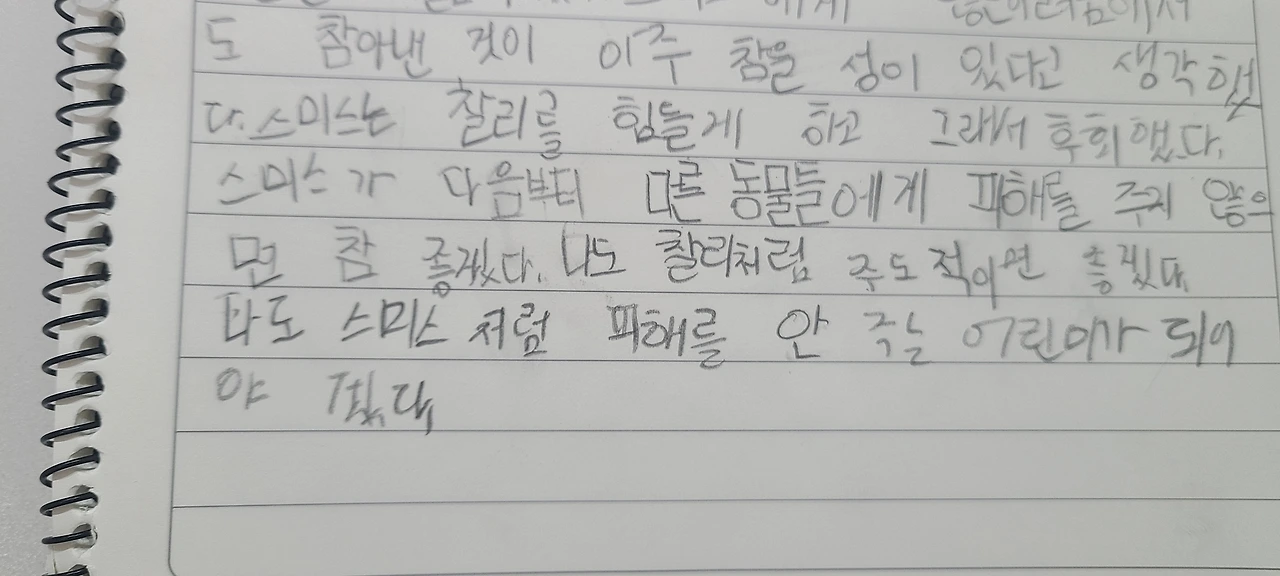 에게
도 참아낸 것이 아주 참을 성이 있다고 생각했
다. 스미스는 찰리를 힘들게 하고 그래서 후회했다.
스미스가 다음부터 다른 동물들에게 피해를 주지 않으
면 참 좋겠다. 나도 찰리처럼 주도적이면 좋겠다.
나도 스미스처럼 피해를 안 주는 어린이가 되어
야 겠다.